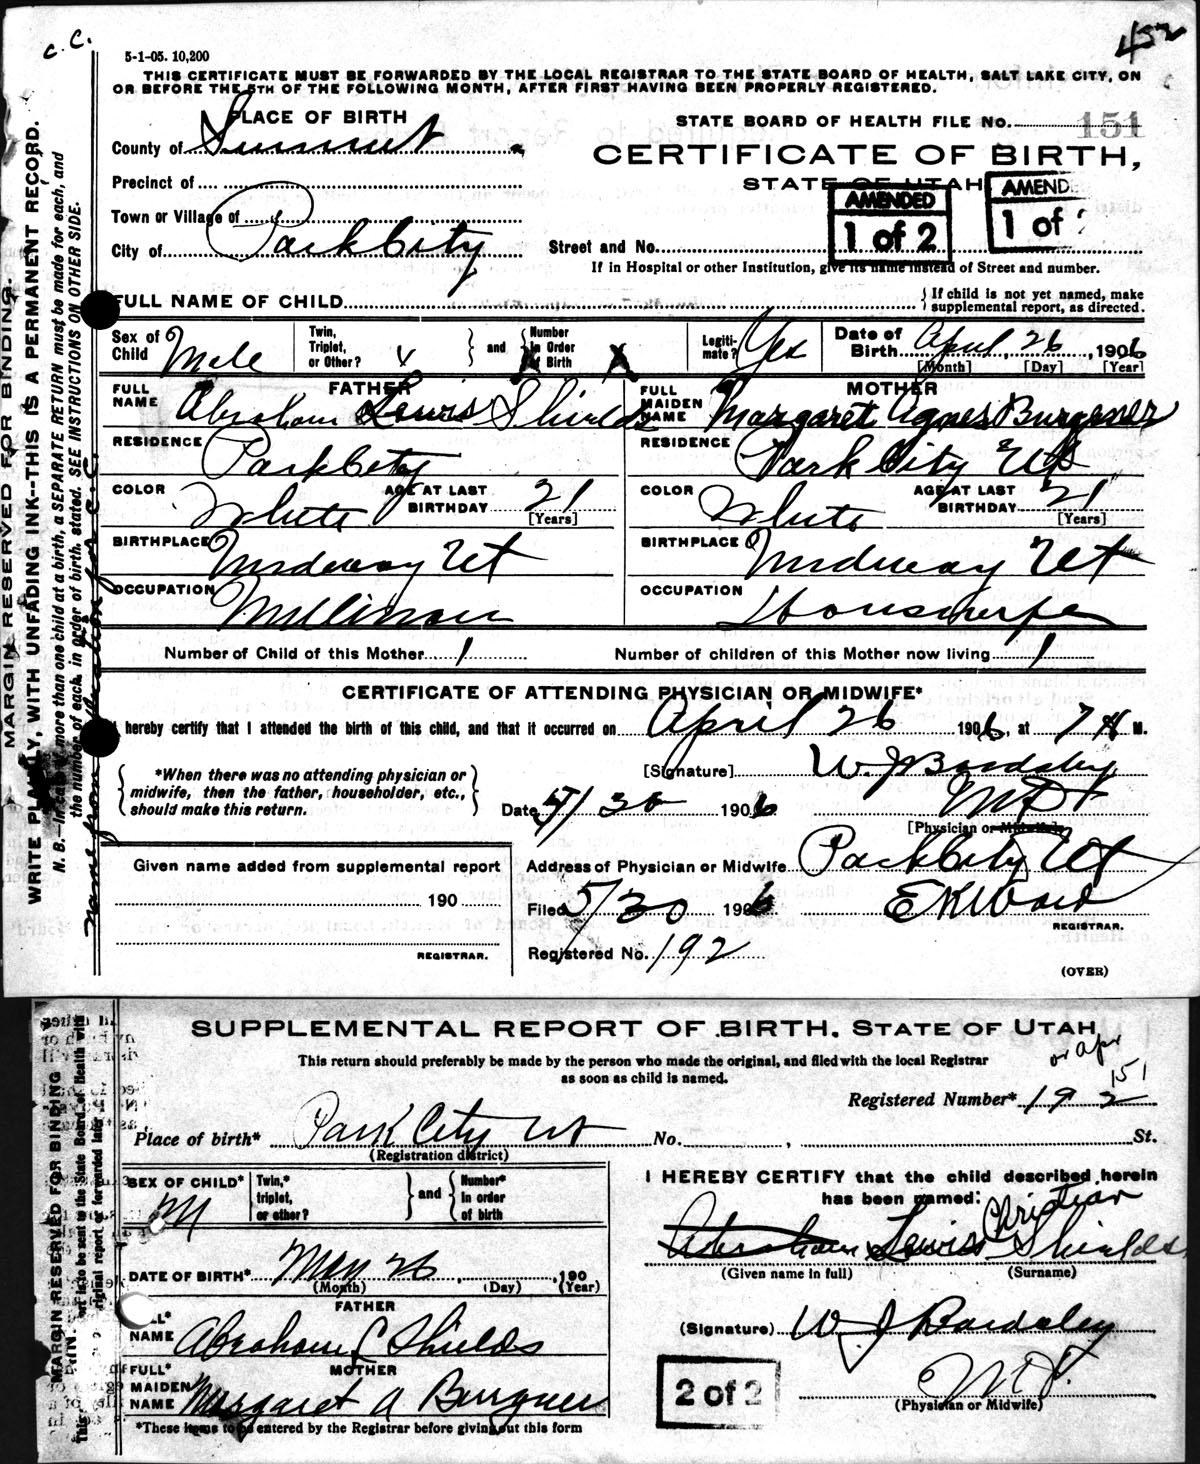 C. C.
452
5-1-05. 10,200
THIS CERTIFICATE MUST BE FORWARDED BY THE LOCAL REGISTRAR TO THE STATE BOARD OF HEALTH, SALT LAKE CITY, ON
OR BEFORE THE 5TH OF THE FOLLOWING MONTH, AFTER FIRST HAVING BEEN PROPERLY REGISTERED.
PLACE OF BIRTH
STATE BOARD OF HEALTH FILE No. 151
County of Summit
CERTIFICATE OF BIRTH,
Precinct of
STATE OF UTAH
AMENDED
1 of 2
AMEND
1 of 2
Town or Village of
City of Park City
Street and No.
If in Hospital or other Institution, give its name instead of Street and number.
FULL NAME OF CHILD
If child is not yet named, make
supplemental report, as directed.
Sex of
Child Male
Twin,
Triplet,
or Other? x
and
Number
in Order
of Birth X
Legiti-
mate? Yes
Date of
Birth April, 26, 1906
[Month] [Day] [Year]
FATHER
FULL
NAME Abraham Lewis Shields
RESIDENCE Park City
COLOR White
AGE AT LAST
BIRTHDAY 21
[Years]
BIRTHPLACE Midway Ut
OCCUPATION Millman
MOTHER
FULL
MAIDEN
NAME Margaret Agnes Burgener
RESIDENCE Park City Ut
COLOR White
AGE AT LAST
BIRTHDAY 21
[Years]
BIRTHPLACE Midway Ut
OCCUPATION Housewife
Number of Child of this Mother 1
Number of children of this Mother now living 1
CERTIFICATE OF ATTENDING PHYSICIAN OR MIDWIFE*
I hereby certify that I attended the birth of this child, and that it occurred on April 26 1906, at 7 A M.
*When there was no attending physician or
midwife, then the father, householder, etc.,
should make this return.
[Signature] W. J Bardsley
Date 5/30 1906
M D
[Physician or Midwife]
Given name added from supplemental report
190
REGISTRAR.
Address of Physician or Midwife Park City Ut
Filed 5/30 1906
E K Ward
REGISTRAR.
Registered No. 192
(OVER)
MARGIN RESERVED FOR BINDING.
WRITE PLAINLY, WITH UNFADING INK--THIS IS A PERMANENT RECORD.
N. B.--In case of more than one child at a birth, a SEPARATE RETURN must be made for each, and
the number of each, in order of birth, stated. SEE INSTRUCTIONS ON OTHER SIDE.
Name from notation for C.C.
SUPPLEMENTAL REPORT OF BIRTH. STATE OF UTAH
This return should preferably be made by the person who made the original, and filed with the local Registrar
as soon as child is named.
or Apr
151
Registered Number* 192
Place of birth* Park City Ut No. , St.
(Registration district)
SEX OF CHILD*
M
Twin,*
triplet,
or other?
and
Number*
in order
of birth
DATE OF BIRTH* May 26, 190
(Month) (Day) (Year)
FATHER
FULL*
NAME Abraham L Shields
MOTHER
FULL*
MAIDEN
NAME Margaret A Burgener
*These items to be entered by the Registrar before giving out this form
I HEREBY CERTIFY that the child described herein
has been named:
Christian
Abraham Lewis Shields
(Given name in full) (Surname)
(Signature) W J Bardsley
M D.
(Physician or Midwife)
2 of 2
MARGIN RESERVED FOR BINDING